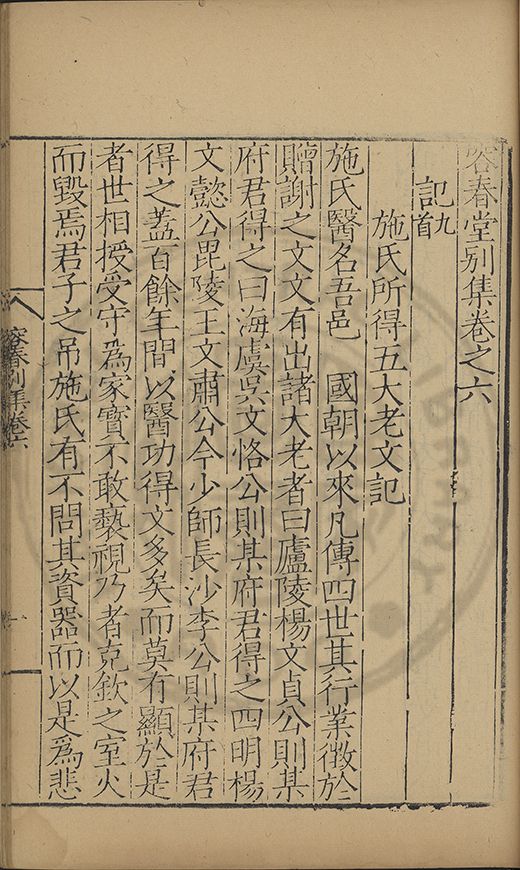 容春堂別集卷之六
記九首
施氏所得五大老文記
施氏醫名吾邑　國朝以來凡傳四世其行業徵於
贈謝之文文有出諸大老者曰廬陵楊文貞公則某
府君得之曰海虞吳文恪公則某府君得之四明楊
文懿公毘陵王文肅公今少師長沙李公則某府君
得之蓋百餘年間以醫功得文多矣而莫有顯於是
者世相授受守爲家寳不敢褻視乃者克欽之室火
而毀焉君子之吊施氏有不問其資噐而以是爲悲
容春別集卷六